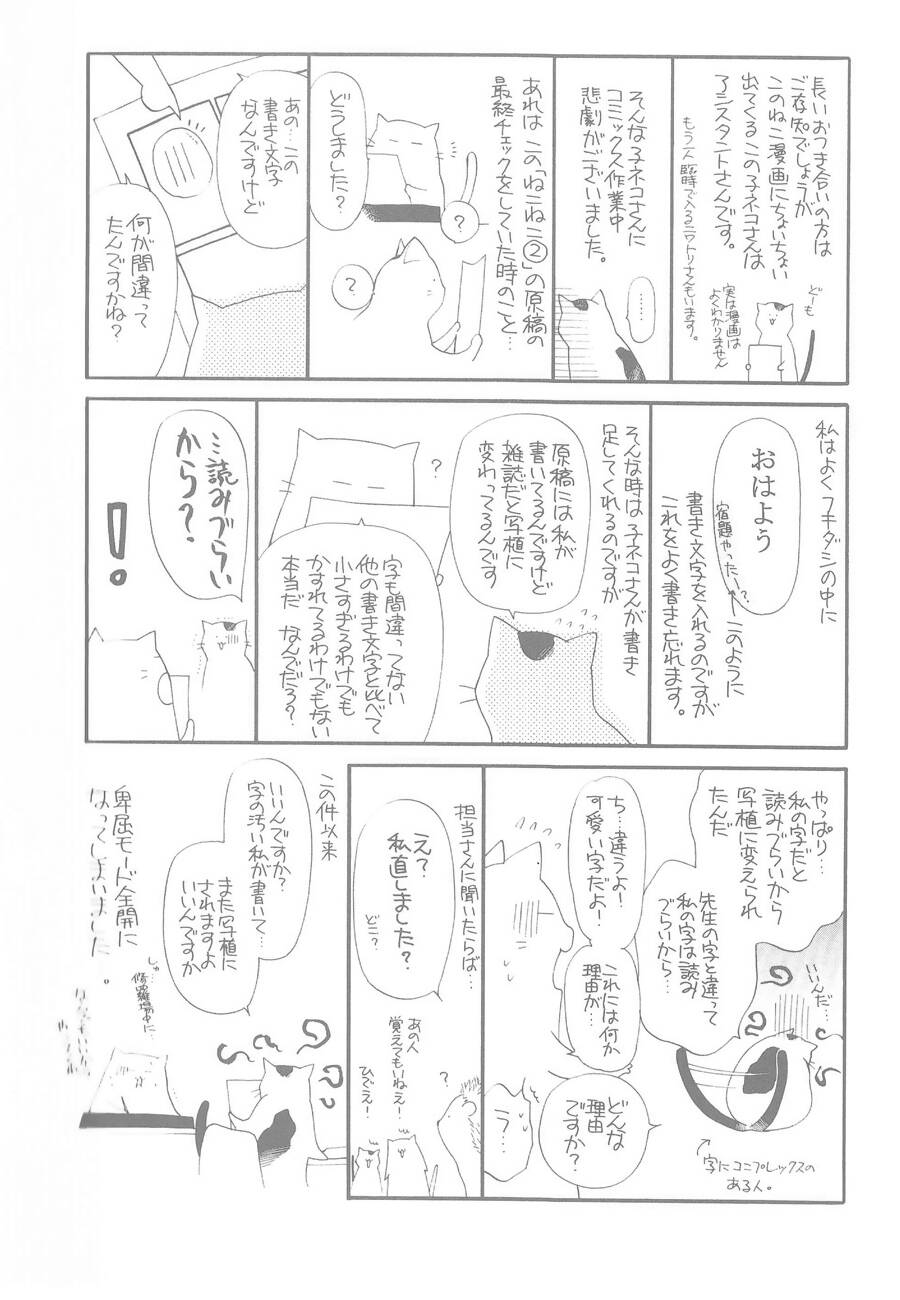 長いおつき合いの方は
ご存知でしょうが
このねこ漫画にちょいちょい
出てくるこの子ネコさんは
アシスタントさんです。
もう一人臨時で入るニワトリさんもいます。
どーも
実は漫画は
よくわかりません
そんな子ネコさんに
コミックス作業中
悲劇がございました。
………
あれはこの「ねこねこ②」の原稿の
最終チェックをしていた時のこと…
どうしました?
?
?
あの…この
書き文字
なんですけど
何が間違って
たんですかね?
私はよくフキダシの中に
おはよう
宿題やったー?
←このように
書き文字を入れるのですが
これをよく書き忘れます。
そんな時は子ネコさんが書き
足してくれるのですが
原稿には私が
書いてるんですけど
雑誌だと写植に
変わってるんです
?
字も間違ってない
他の書き文字と比べて
小さすぎるわけでも
かすれてるわけでもない
本当だ なんでだろ?
…読みづらい
から?
!
やっぱり…
私の字だと
読みづらいから
写植に変えられ
たんだ
いいんだ…
先生の字と違って
私の字は読み
づらいから…
字にコンプレックスの
ある人。
ち…違うよ!
可愛い字だよ!
これには何か
理由が…
どんな
理由
ですか?
ラ…
担当さんに聞いたらば…
え?
私直しました?
どこ?
?
あの人
覚えてもいねぇ!
ひでえ!
この件以来
いいんですか?
字の汚い私が書いて…
また写植に
されますよ
いいんですか
しゅ…
修羅場中に
卑屈モード全開に
なってしまいました。